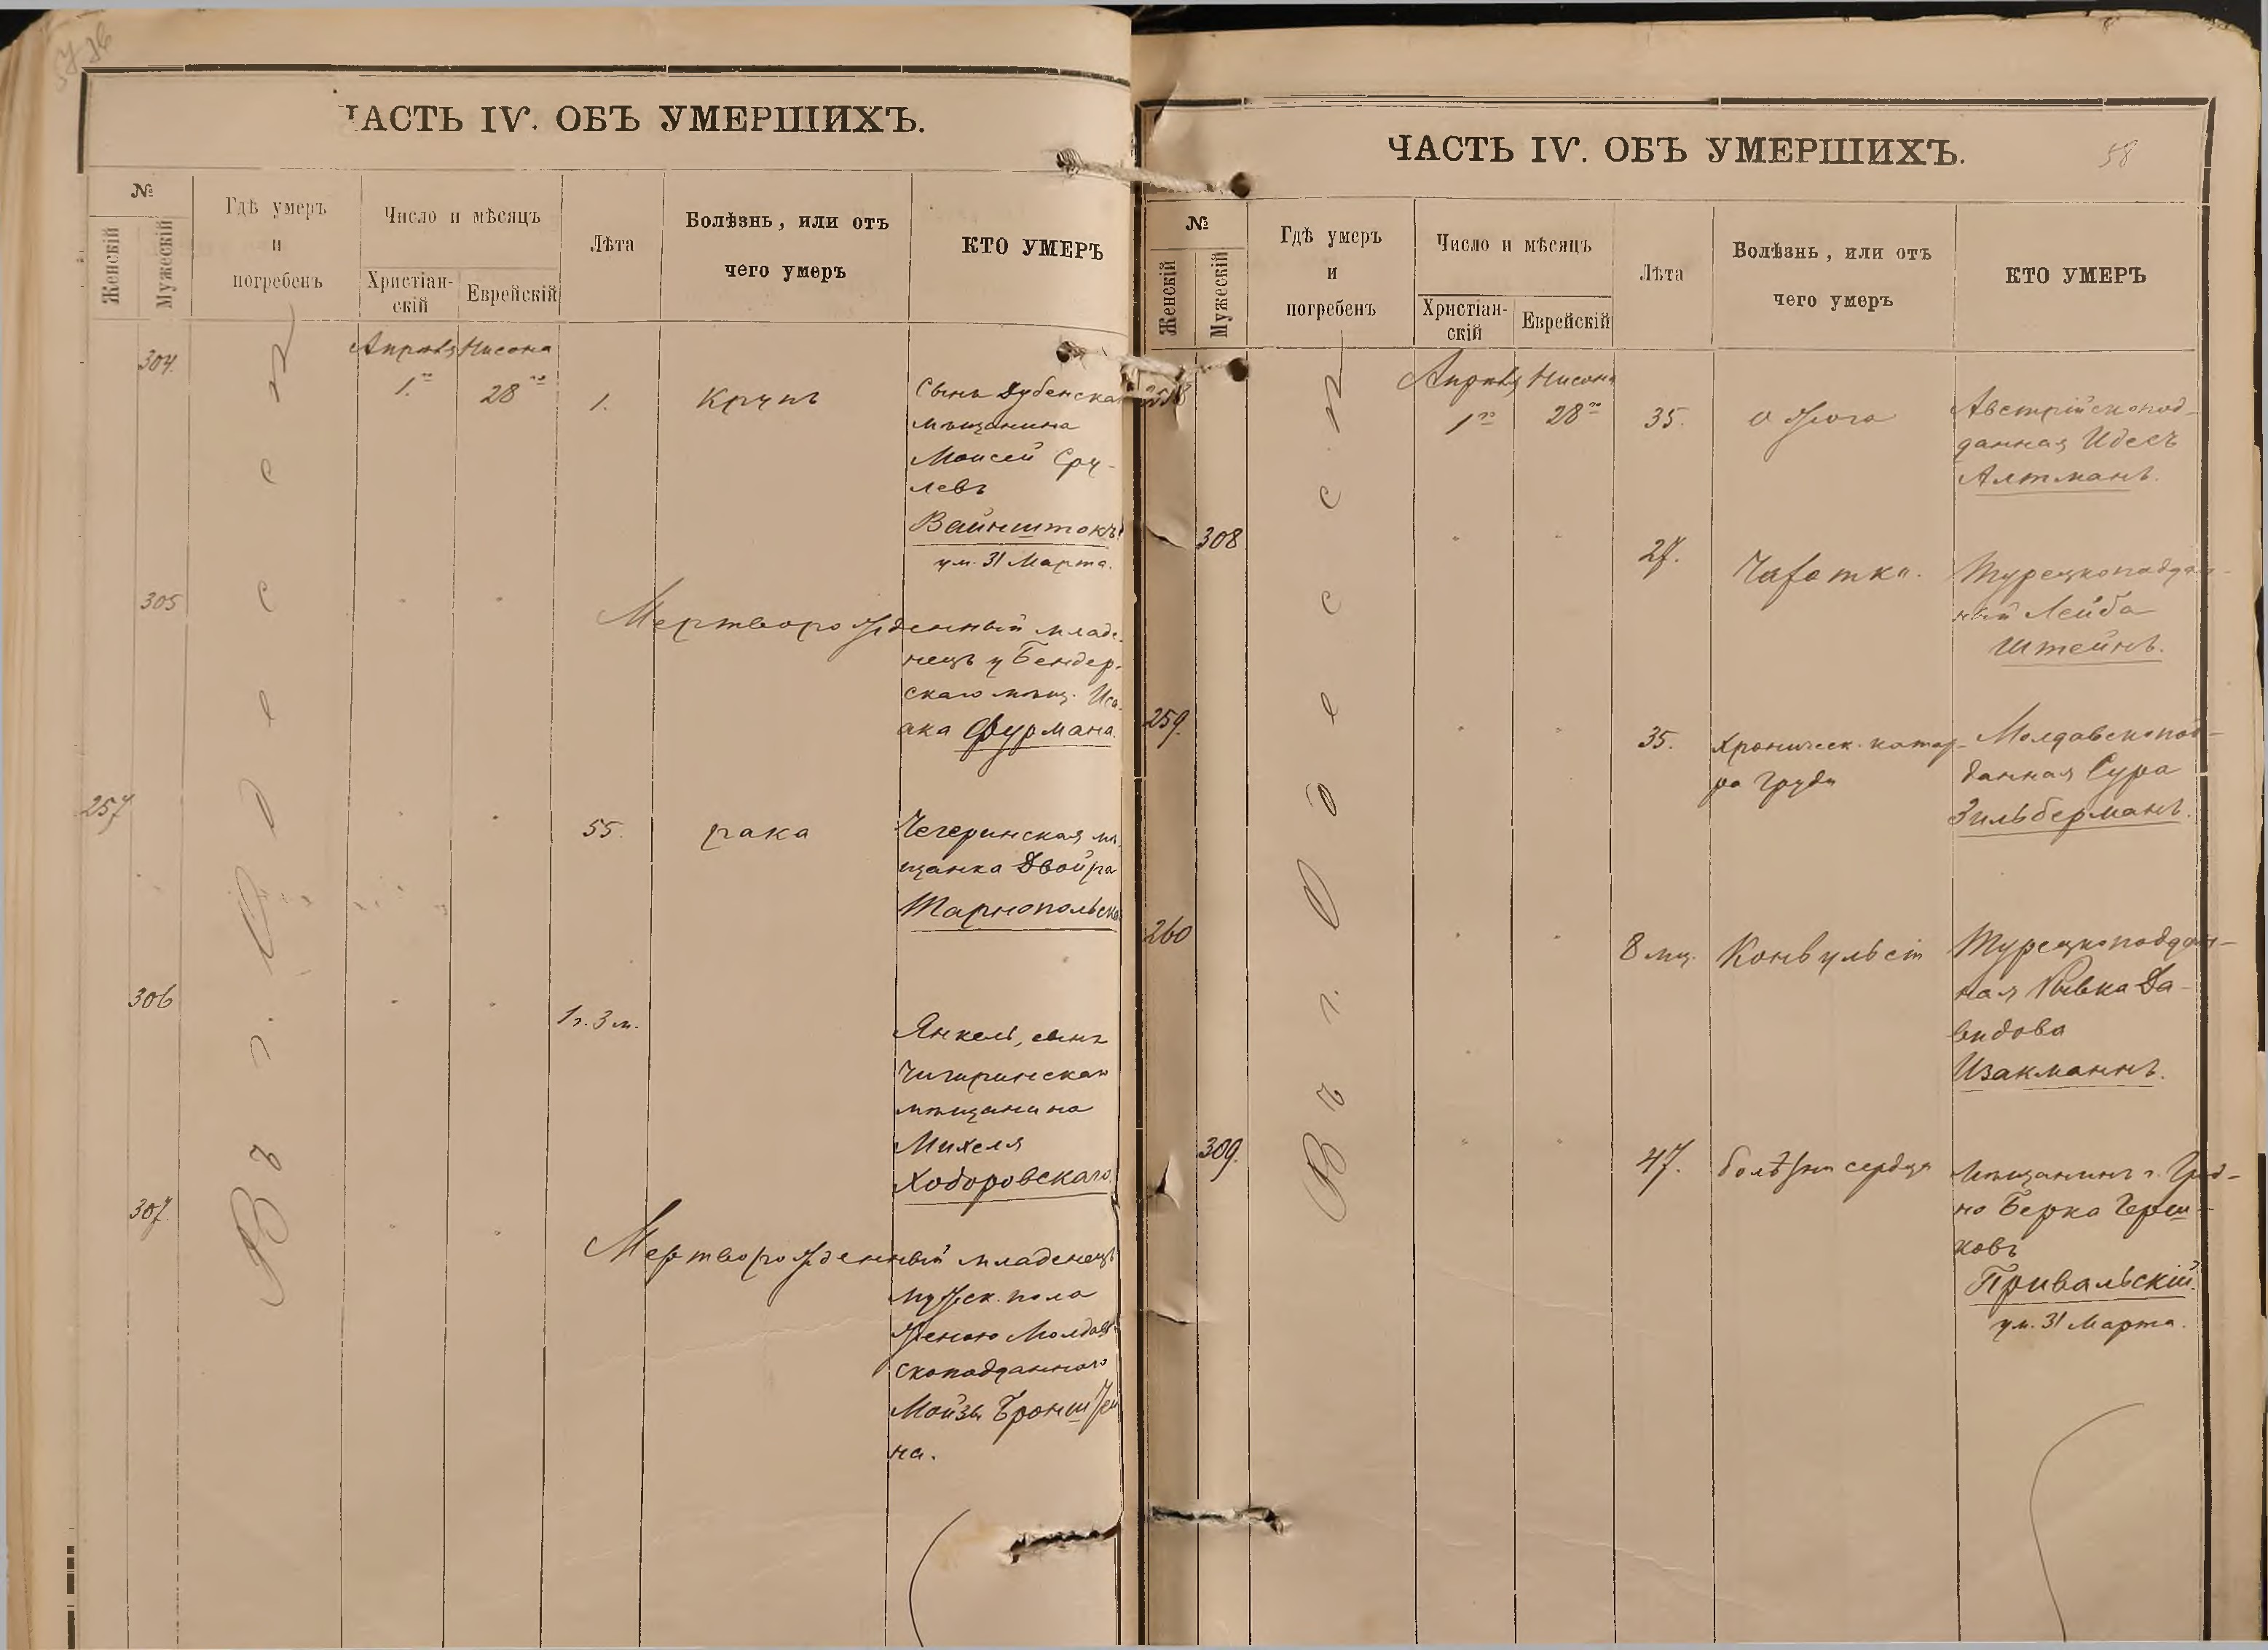 ЧАСТЬ IV. ОБЪ УМЕРШИХЪ.
№
Женскій
Мужескій
Гдѣ умеръ
и
погребенъ
Число и мѣсяцъ
Христіан-
скій
Еврейскій
Лѣта
Болѣзнь, или отъ
чего умеръ
КТО УМЕРЪ
Въ г. Одессѣ
304.
Апрѣля Нисона
1.го 28го
1.
Крупъ
Сынъ Дубенскаго
мѣщанина
Моисей Сру-
левъ
Вайнштокъ
ум. 31 Марта.
305
Мертворожденный младе-
нецъ у Бендер-
скаго мѣщ. Иса-
ака Фурмана.
257
55.
рака
Чегеринская мѣ-
щанка Двойра
Тарнопольская
306
1 г. 3 м.
Янкель, сынъ
Чигиринскаго
мѣщанина
Михеля
Ходоровскаго.
307.
Мертворожденный младенецъ
мужск. пола
женою Молдав-
скоподданнаго
Мойзы Бронштей-
на.
ЧАСТЬ IV. ОБЪ УМЕРШИХЪ.
58
№
Женскій
Мужескій
Гдѣ умеръ
и
погребенъ
Число и мѣсяцъ
Христіан-
скій
Еврейскій
Лѣта
Болѣзнь, или отъ
чего умеръ
КТО УМЕРЪ
Въ г. Одессѣ
258
Апрѣля Нисона
1го 28го
35.
Ожога
Австрійскопод-
данная Идесъ
Алтманъ.
308
27.
Чахотка.
Турецкоподдан-
ный Лейба
Штейнъ.
259.
35.
Хроническ. катар-
ра груди
Молдавскопод-
данная Сура
Зильберманъ.
260
8 мц.
Конвульсіи
Турецкоподдан-
ная Ривка Да-
видова
Изакманнъ.
309.
47.
болѣзни сердца
Мѣщанинъ г. Грод-
но Берко Герш-
ковъ
Привальскій.
ум. 31 Марта.